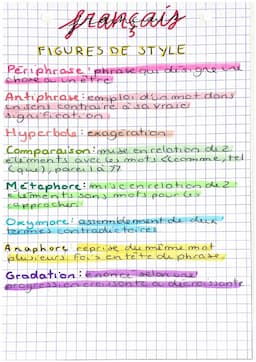 français
FIGURES DE STYLE
Périphrase: phrase qui désigne une
chose ou un être
Antiphrase: emploi d'un mot dans
un sens contraire à sa vraie
signification
Hyperbole: exagération
Comparaison: mise en relation de 2
éléments avec les mots <<comme, tel
(que), pareil à >>
Métaphore: mise en relation de 2
éléments sans mots pour les
rapprocher.
Oxymore: assemblement de deux
termes contradictoires
Anaphore reprise du même mot
plusieurs fois en tête de phrase.
Gradation: énoncé selon une
progression croissante ou décroissante